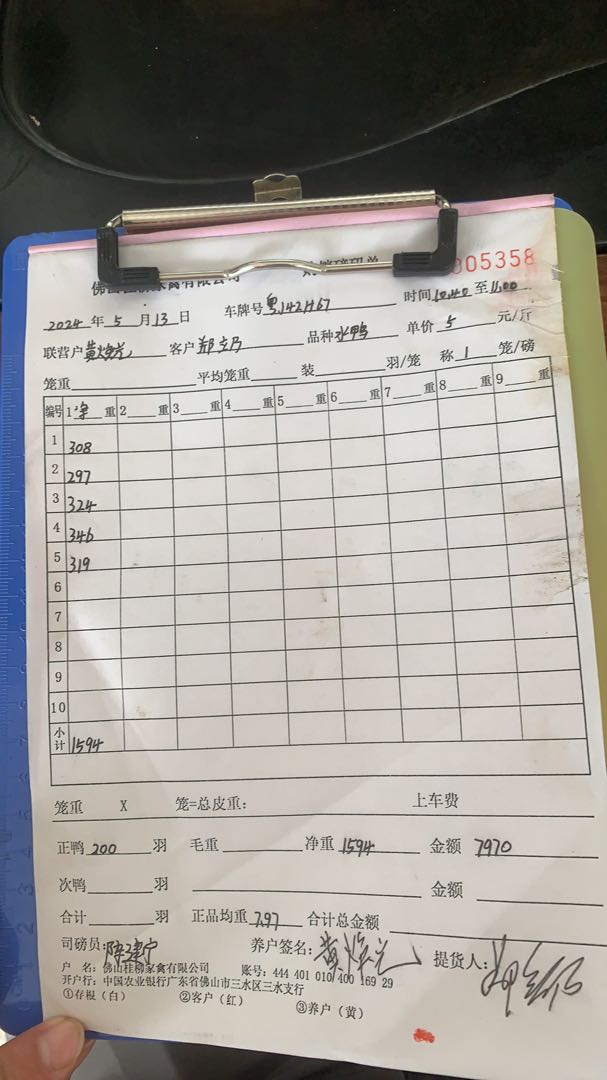 佛山桂柳家禽有限公司 005358
2024 年 5 月 13 日 车牌号 粤J42H67 时间 10:40 至 11:00
联营户 客户 品种 水鸭 单价 5 元/斤
笼重 平均笼重 装 羽/笼 称 1 笼/磅
编号 1 净 重 2 重 3 重 4 重 5 重 6 重 7 重 8 重 9 重
1 308
2 297
3 324
4 346
5 319
6
7
8
9
10
小计 1594
笼重 X 笼=总皮重: 上车费
正鸭 200 羽 毛重 净重 1594 金额 7970
次鸭 羽 金额
合计 羽 正品均重 7.97 合计总金额
司磅员: 养户签名: 提货人:
户 名: 佛山桂柳家禽有限公司 账号: 444 401 010/400 169 29
开户行: 中国农业银行广东省佛山市三水区三水支行
①存根（白） ②客户（红） ③养户（黄）